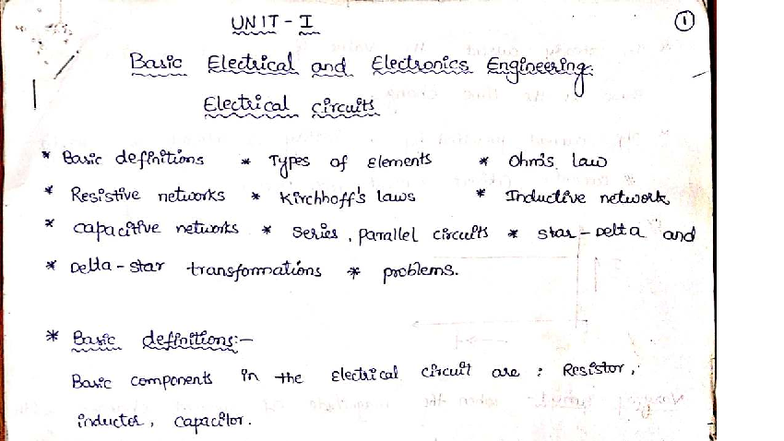 UNIT - I
1
Basic Electrical and Electronics Engineering.
Electrical circuits
* Basic definitions * Types of Elements * Ohm's law
* Resistive networks * Kirchhoff's laws * Inductive network
* capacitive networks * series, parallel circuits * star-Delta and
* Delta-star transformations * problems.
* Basic definitions:-
Basic components in the Electrical circuit are : Resistor,
inductor, capacitor.